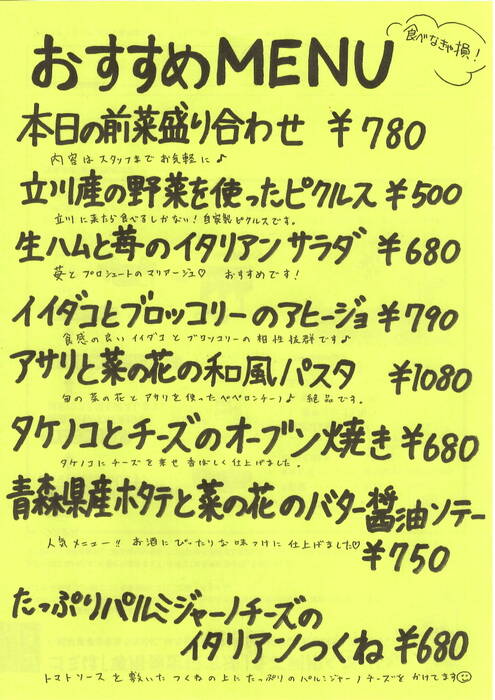 おすすめMENU
食べなきゃ損！
本日の前菜盛り合わせ ¥780
内容はスタッフまでお気軽に♪
立川産の野菜を使ったピクルス ¥500
立川に来たら食べるしかない！自家製ピクルスです。
生ハムと苺のイタリアンサラダ ¥680
苺とプロシュートのマリアージュ♡ おすすめです！
イイダコとブロッコリーのアヒージョ ¥790
食感の良いイイダコとブロッコリーの相性抜群です♪
アサリと菜の花の和風パスタ ¥1080
旬の菜の花とアサリを使ったペペロンチーノ♪ 絶品です。
タケノコとチーズのオーブン焼き ¥680
タケノコにチーズを乗せ香ばしく仕上げました。
青森県産ホタテと菜の花のバター醤油ソテー
人気メニュー!! お酒にぴったりな味つけに仕上げました♡
¥750
たっぷりパルミジャーノチーズの
イタリアンつくね ¥680
トマトソースを敷いたつくねの上にたっぷりのパルミジャーノチーズをかけてます☺